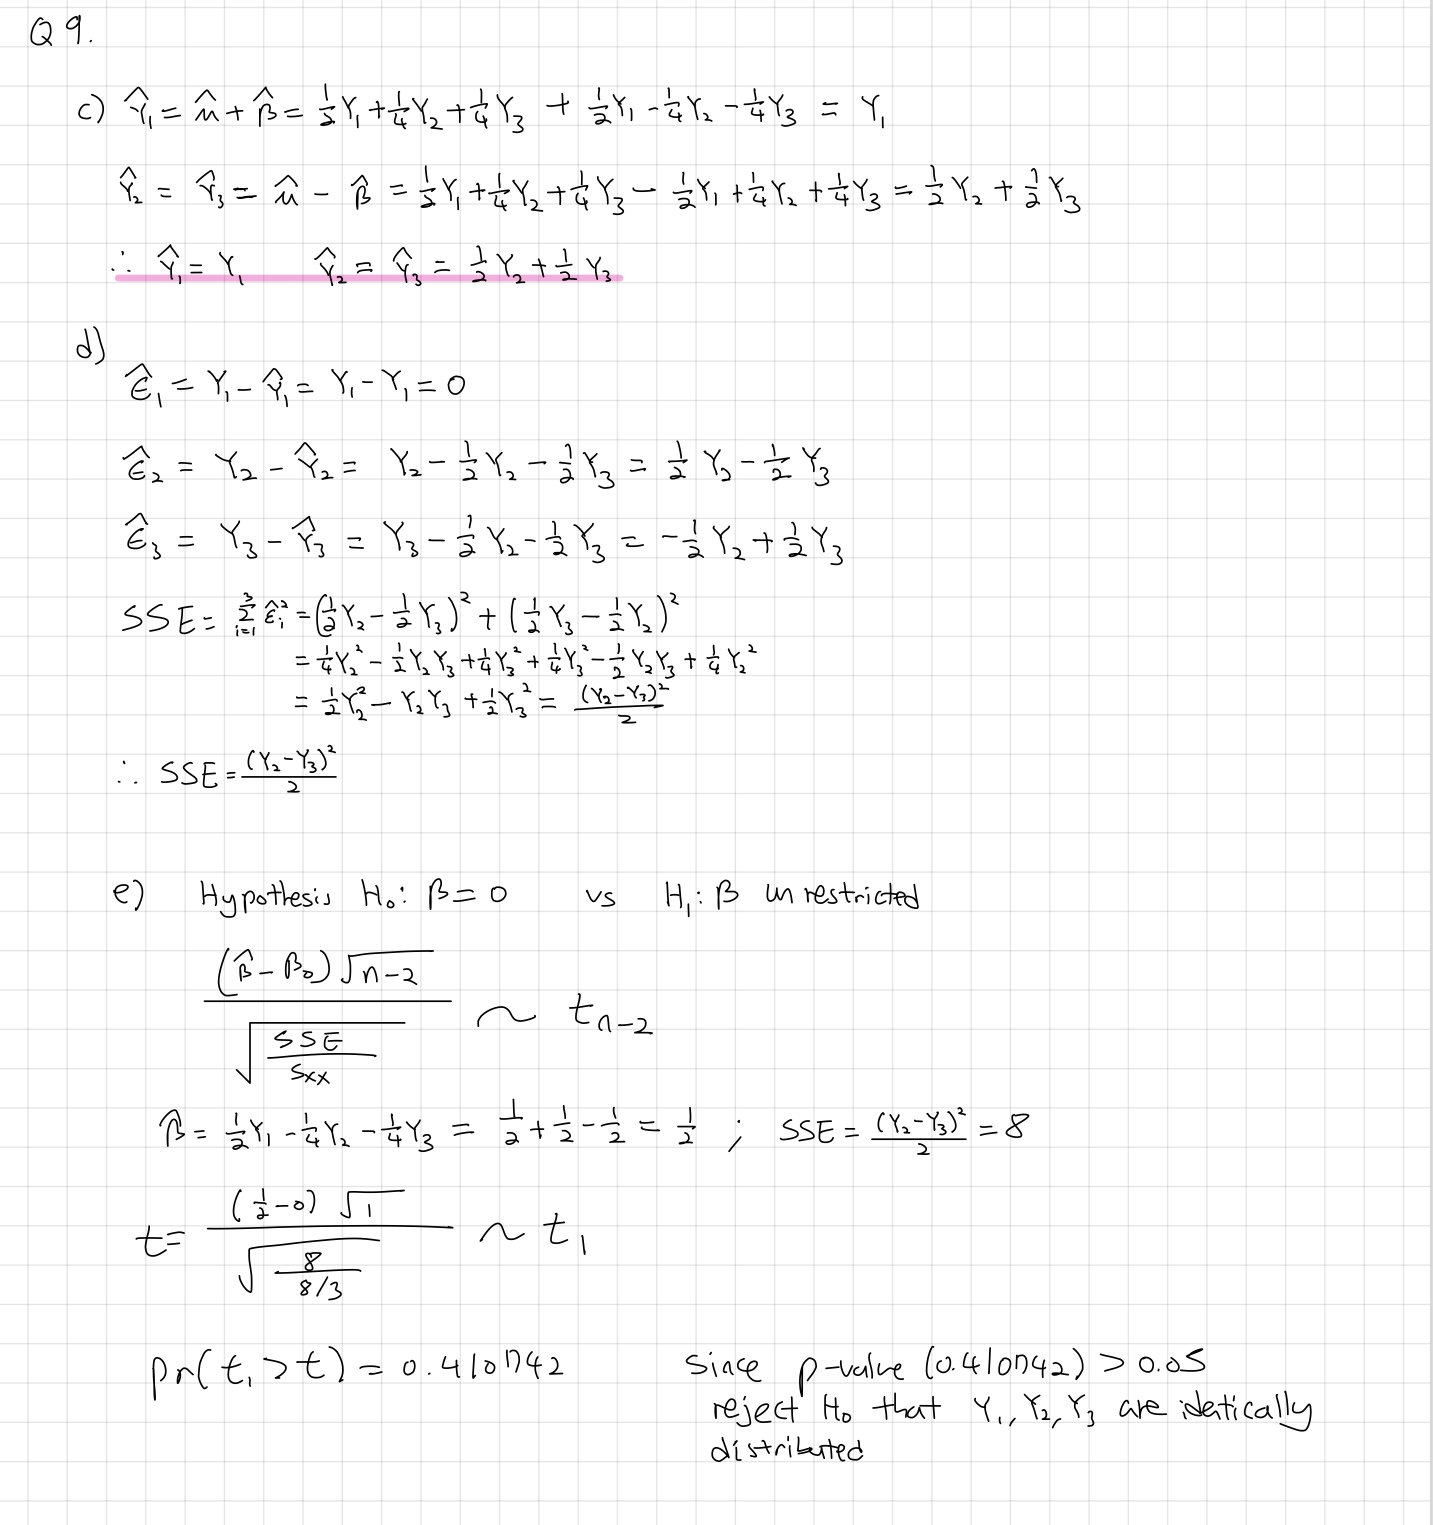 Q9.
c) Ŷ₁ = μ̂ + β̂ = ½Y₁ + ¼Y₂ + ¼Y₃ + ½Y₁ - ¼Y₂ - ¼Y₃ = Y₁
Ŷ₂ = Ŷ₃ = μ̂ - β̂ = ½Y₁ + ¼Y₂ + ¼Y₃ - ½Y₁ + ¼Y₂ + ¼Y₃ = ½Y₂ + ½Y₃
∴ Ŷ₁ = Y₁ Ŷ₂ = Ŷ₃ = ½Y₂ + ½Y₃
d)
ε̂₁ = Y₁ - Ŷ₁ = Y₁ - Y₁ = 0
ε̂₂ = Y₂ - Ŷ₂ = Y₂ - ½Y₂ - ½Y₃ = ½Y₂ - ½Y₃
ε̂₃ = Y₃ - Ŷ₃ = Y₃ - ½Y₂ - ½Y₃ = -½Y₂ + ½Y₃
SSE = Σᵢ₌₁³ ε̂ᵢ² = (½Y₂ - ½Y₃)² + (½Y₃ - ½Y₂)²
= ¼Y₂² - ½Y₂Y₃ + ¼Y₃² + ¼Y₃² - ½Y₂Y₃ + ¼Y₂²
= ½Y₂² - Y₂Y₃ + ½Y₃² = (Y₂-Y₃)²/2
∴ SSE = (Y₂-Y₃)²/2
e) Hypothesis H₀: β = 0 vs H₁: β unrestricted
(β̂ - β₀)√(n-2) / √(SSE/Sxx) ~ tₙ₋₂
β̂ = ½Y₁ - ¼Y₂ - ¼Y₃ = ½ + ½ - ½ = ½ ; SSE = (Y₂-Y₃)²/2 = 8
t = (½-0)√1 / √(8/(8/3)) ~ t₁
pr(t₁ > t) = 0.4101742 Since p-value (0.4101742) > 0.05
reject H₀ that Y₁, Y₂, Y₃ are identically
distributed